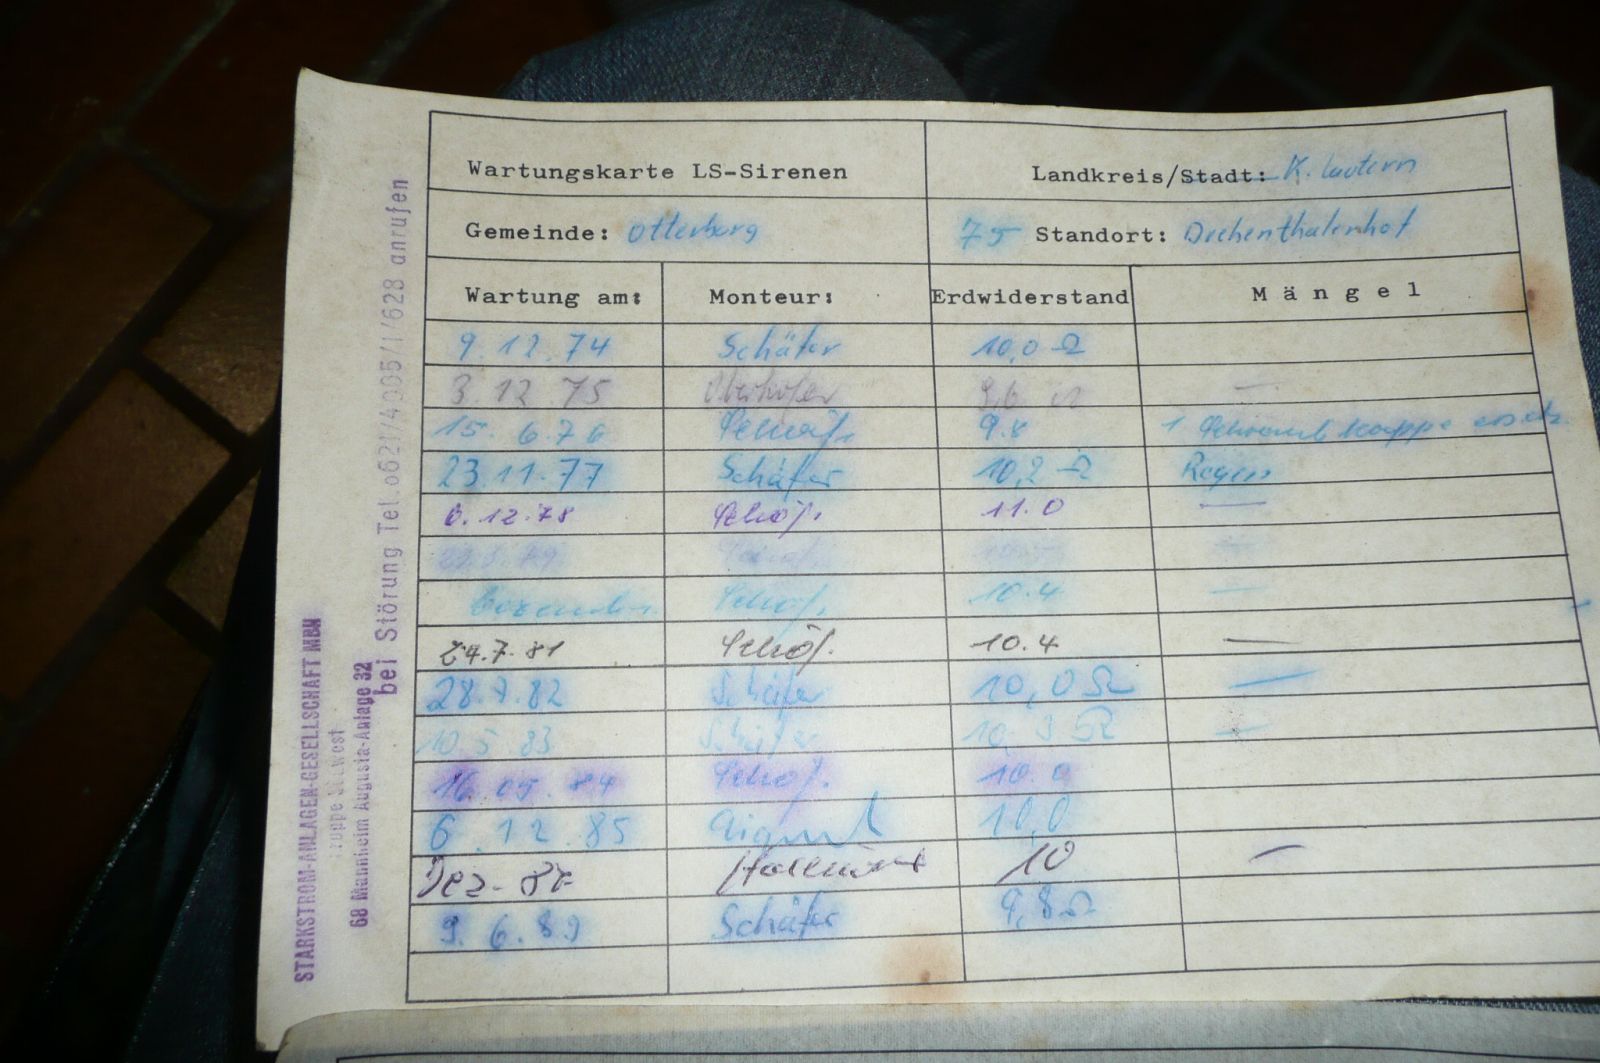 Wartungskarte LS-Sirenen Landkreis/Stadt: K. lautern
Gemeinde: Otterberg 75 Standort: Drehenthalerhof
Wartung am: Monteur: Erdwiderstand Mängel
9.12.74 Schäfer 10,0 Ω
3.12.75 Oberhofer 9,6 Ω —
15.6.76 Schäf. 9.8 1 Schraubkappe
23.11.77 Schäfer 10,2 Ω Regen
6.12.78 Schäf. 11.0 —
79 Schäf. —
Schäf. 10.4 —
24.7.81 Schäf. 10.4 —
28.7.82 Schäfer 10,0 Ω —
10.5.83 Schäfer 10,3 Ω —
16.05.84 Schäf. 10.0
6.12.85 10,0
Dez. 10 —
9.6.89 Schäfer 9,8 Ω
bei Störung Tel.o621/4005/1/628 anrufen
STARKSTROM-ANLAGEN-GESELLSCHAFT MBH
Gruppe Südwest
68 Mannheim Augusta-Anlage 32